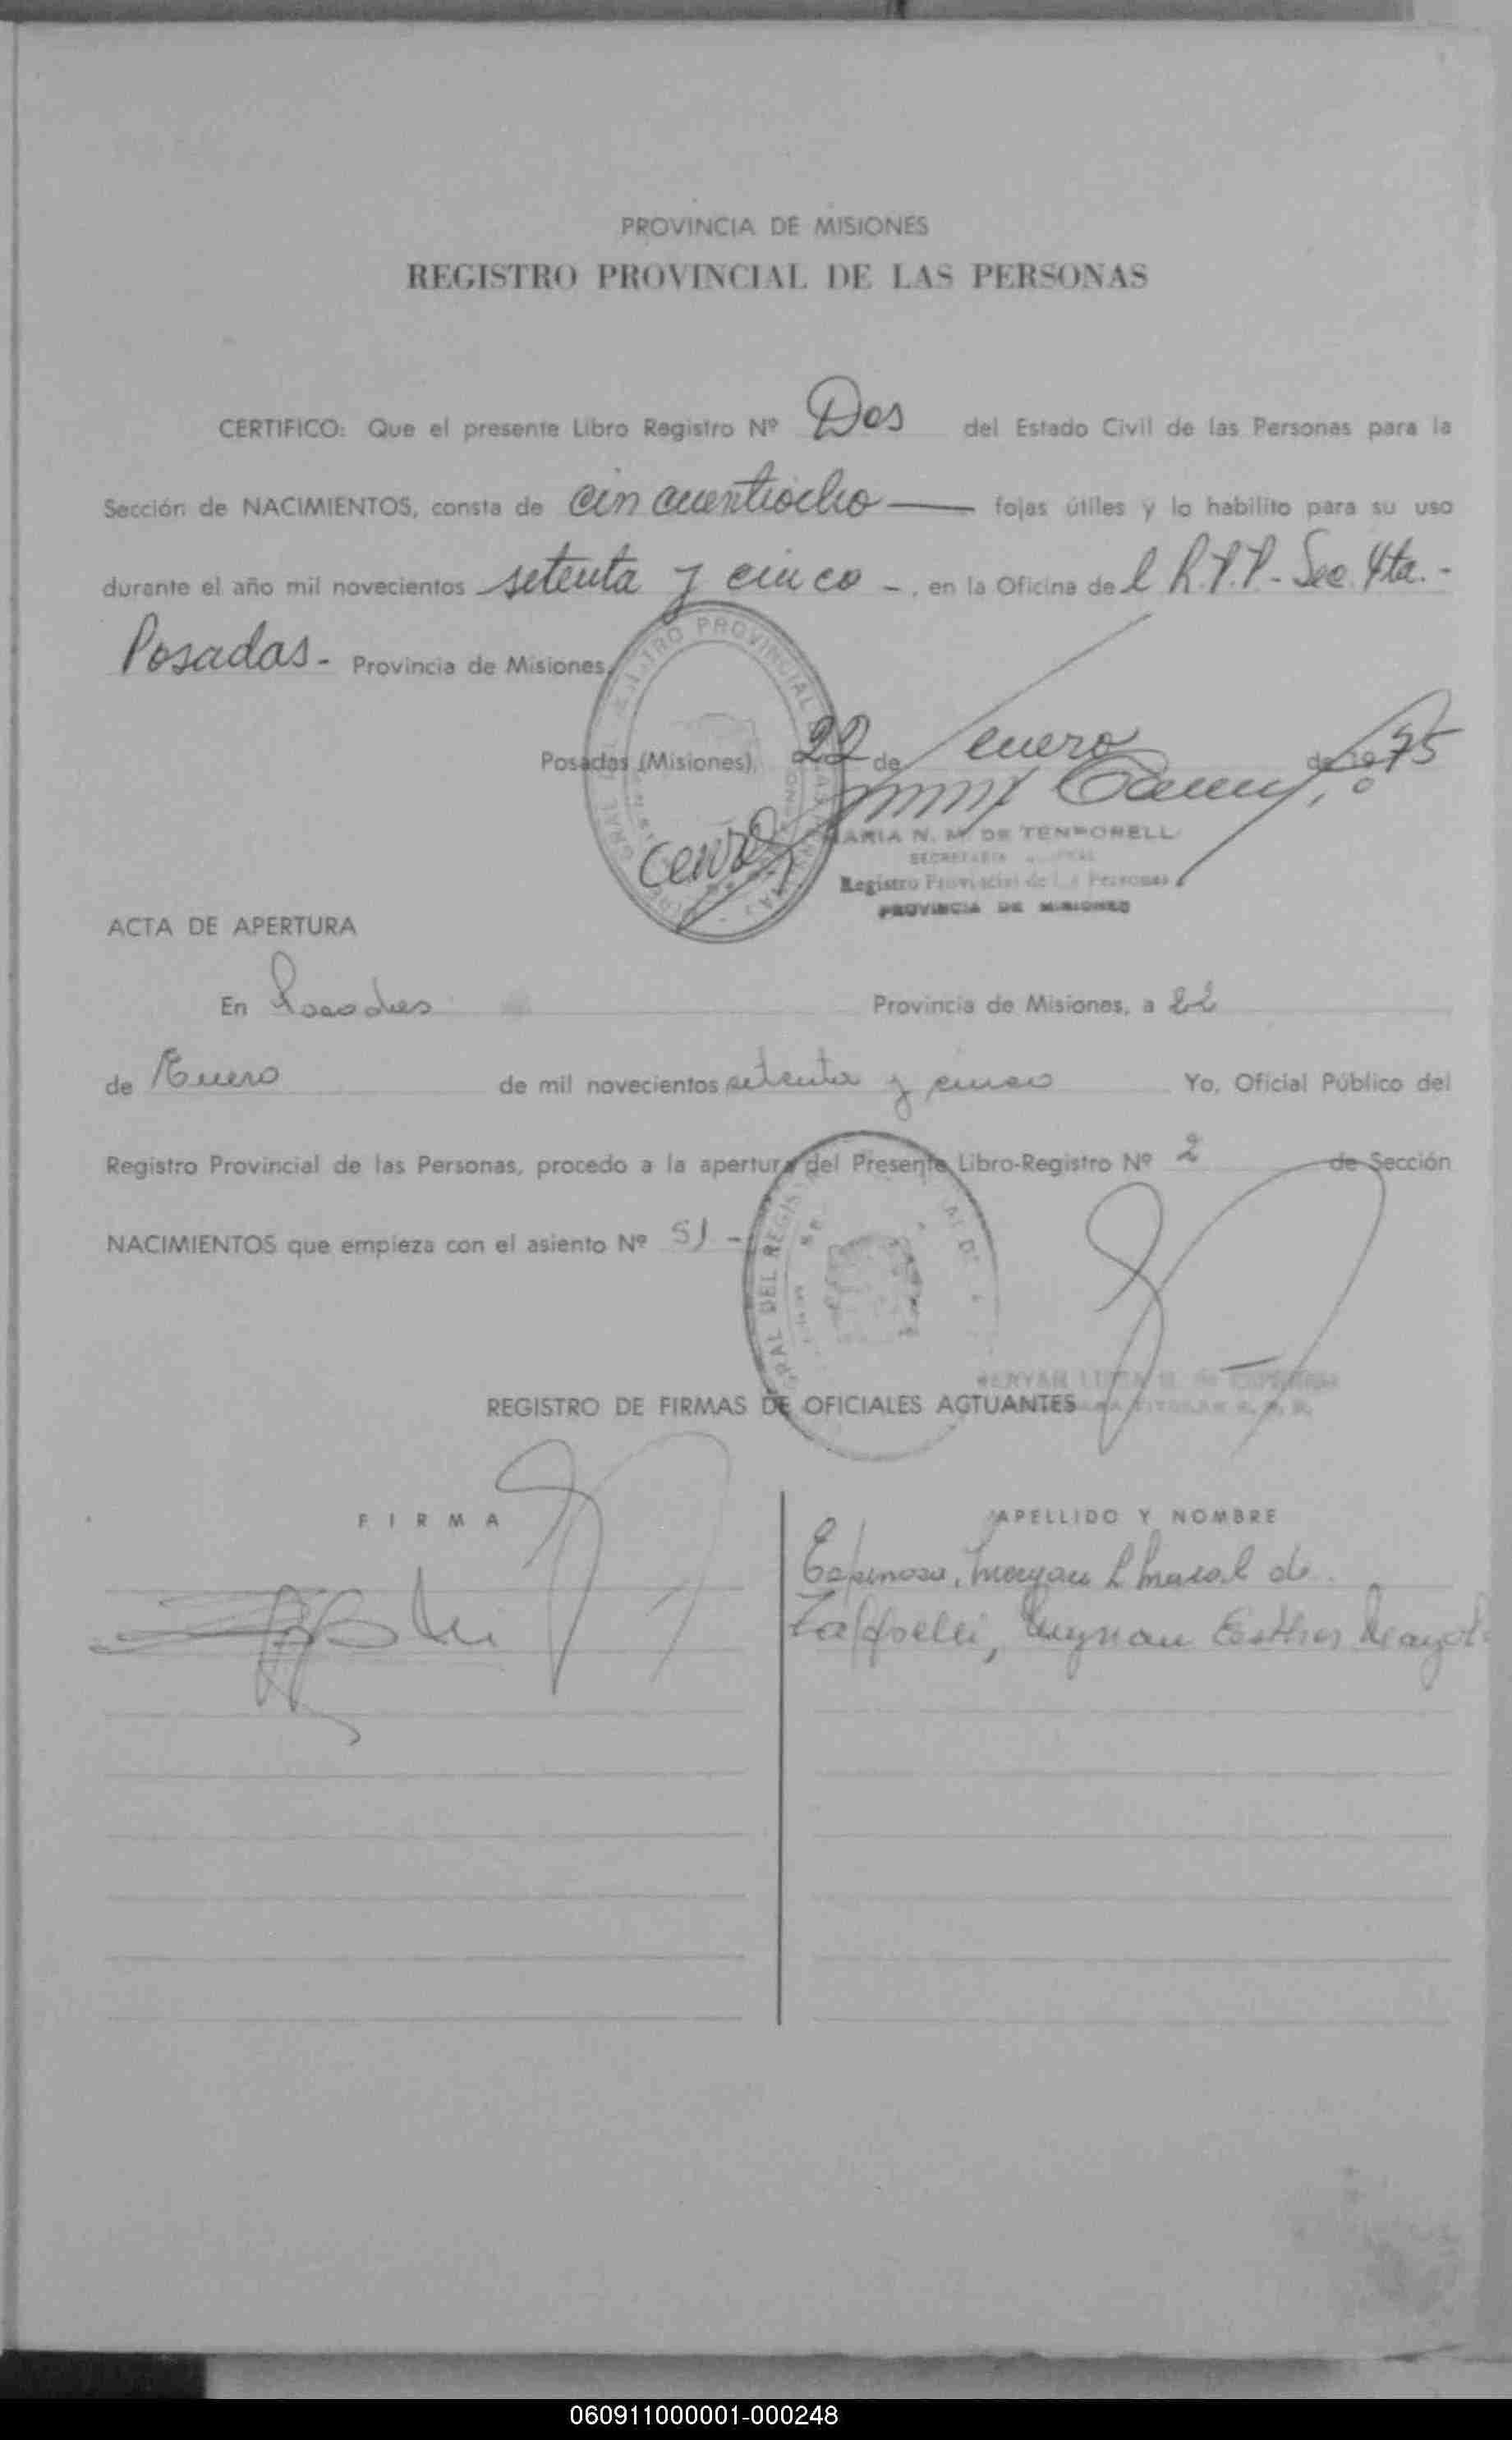 PROVINCIA DE MISIONES
REGISTRO PROVINCIAL DE LAS PERSONAS
CERTIFICO: Que el presente Libro Registro Nº Dos del Estado Civil de las Personas para la
Sección de NACIMIENTOS, consta de cincuentiocho — fojas útiles y lo habilito para su uso
durante el año mil novecientos setenta y cinco -, en la Oficina de l R.P.P. - Sec. 4ta. -
Posadas - Provincia de Misiones.
Posadas (Misiones), 22 de enero de 1975
MARIA N. M. DE TEMPORELL
Registro Provincial de las Personas
PROVINCIA DE MISIONES
ACTA DE APERTURA
En Posadas Provincia de Misiones, a 22
de Enero de mil novecientos setenta y cinco Yo, Oficial Público del
Registro Provincial de las Personas, procedo a la apertura del Presente Libro-Registro Nº 2 de Sección
NACIMIENTOS que empieza con el asiento Nº 51 -
REGISTRO DE FIRMAS DE OFICIALES ACTUANTES
FIRMA
APELLIDO Y NOMBRE
Espinosa, de
Esther
060911000001-000248